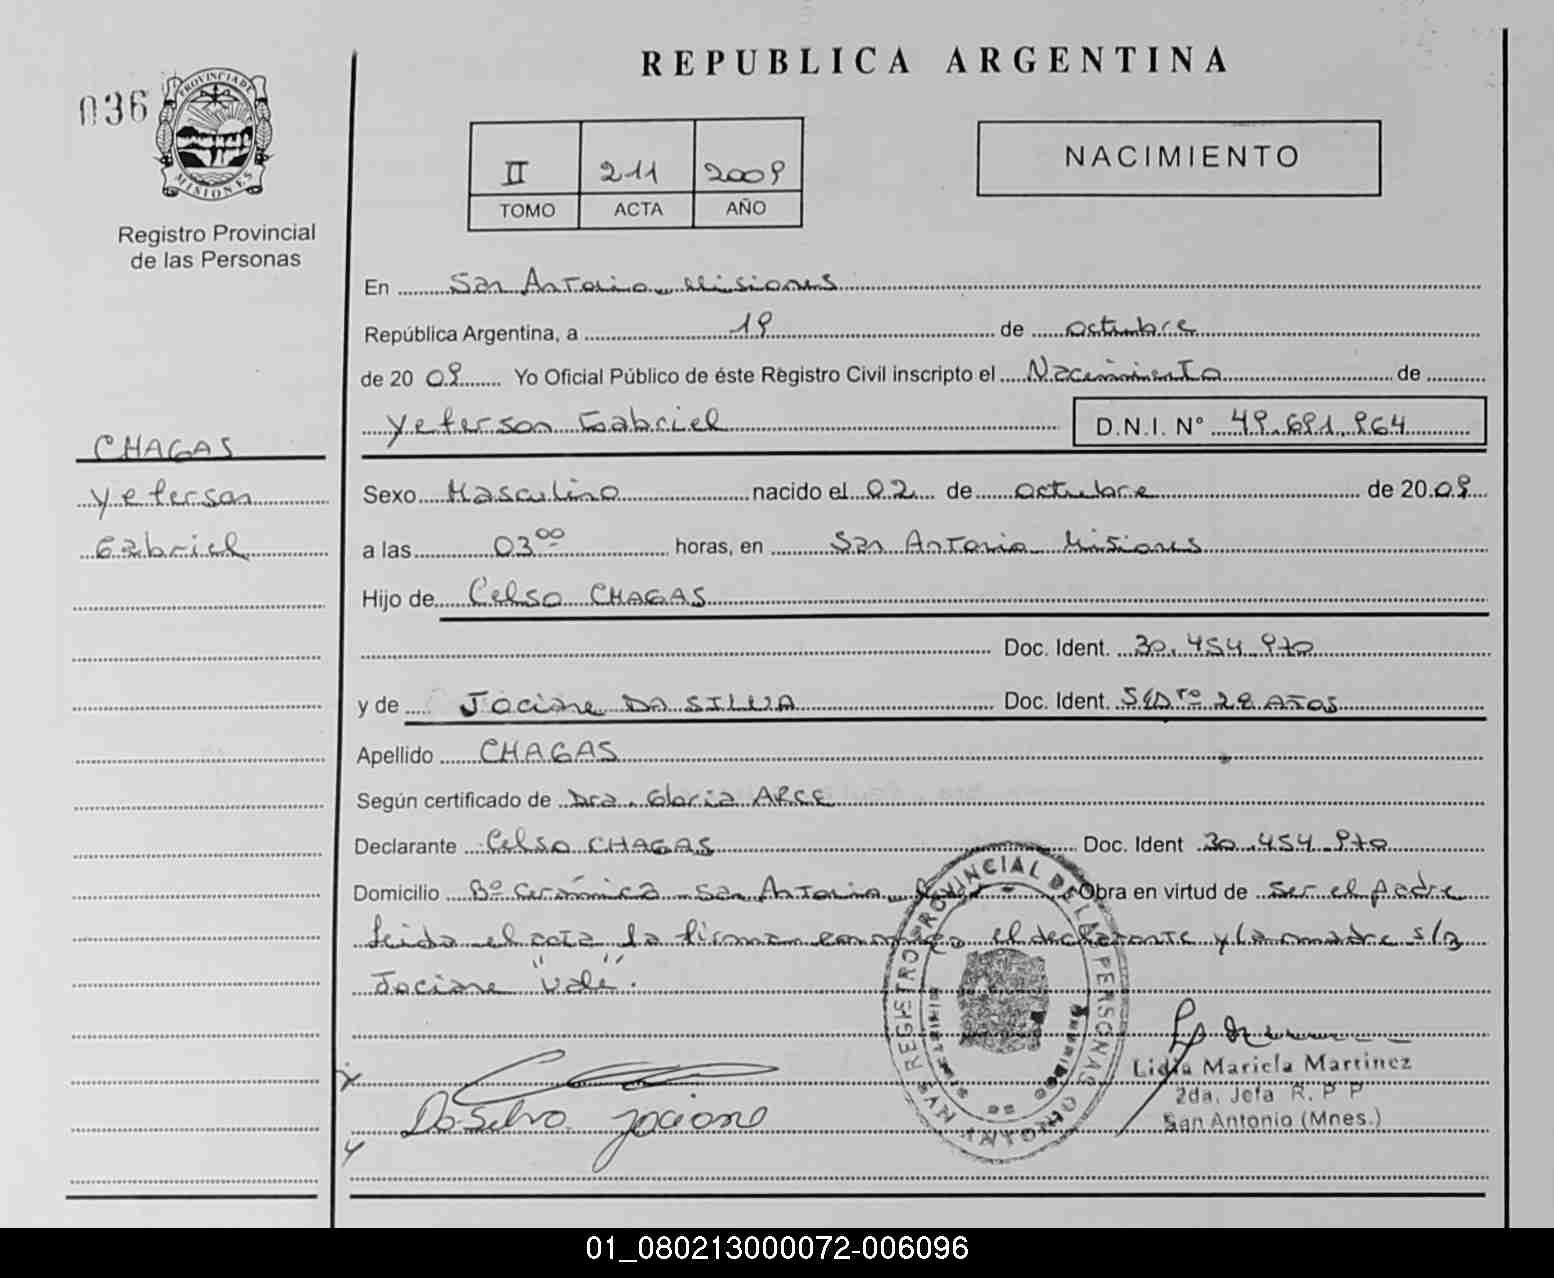 REPUBLICA ARGENTINA
036
PROVINCIA DE
MISIONES
Registro Provincial
de las Personas
II 211 2009
TOMO ACTA AÑO
NACIMIENTO
En San Antonio Misiones
República Argentina, a 19 de octubre
de 20 09 Yo Oficial Público de éste Registro Civil inscripto el Nacimiento de
Yeferson Gabriel D.N.I. N° 49.691.964
CHAGAS
Yeferson
Gabriel
Sexo Masculino nacido el 02 de octubre de 20 09
a las 03 00 horas, en San Antonio Misiones
Hijo de Celso CHAGAS
Doc. Ident. 30.454.970
y de Jociane DA SILVA Doc. Ident. S/Dto 28 AÑOS
Apellido CHAGAS
Según certificado de Dra. Gloria ARCE
Declarante Celso CHAGAS Doc. Ident 30.454.970
Domicilio Bº Cerámica - San Antonio Obra en virtud de ser el padre
Leida el acta la firman conmigo el declarante y la madre s/r
Jociane "Vale".
REGISTRO PROVINCIAL DE LAS PERSONAS
SAN ANTONIO
Da Silva Jociane
Lidia Mariela Martinez
2da. Jefa R. P P
San Antonio (Mnes.)
01_080213000072-006096